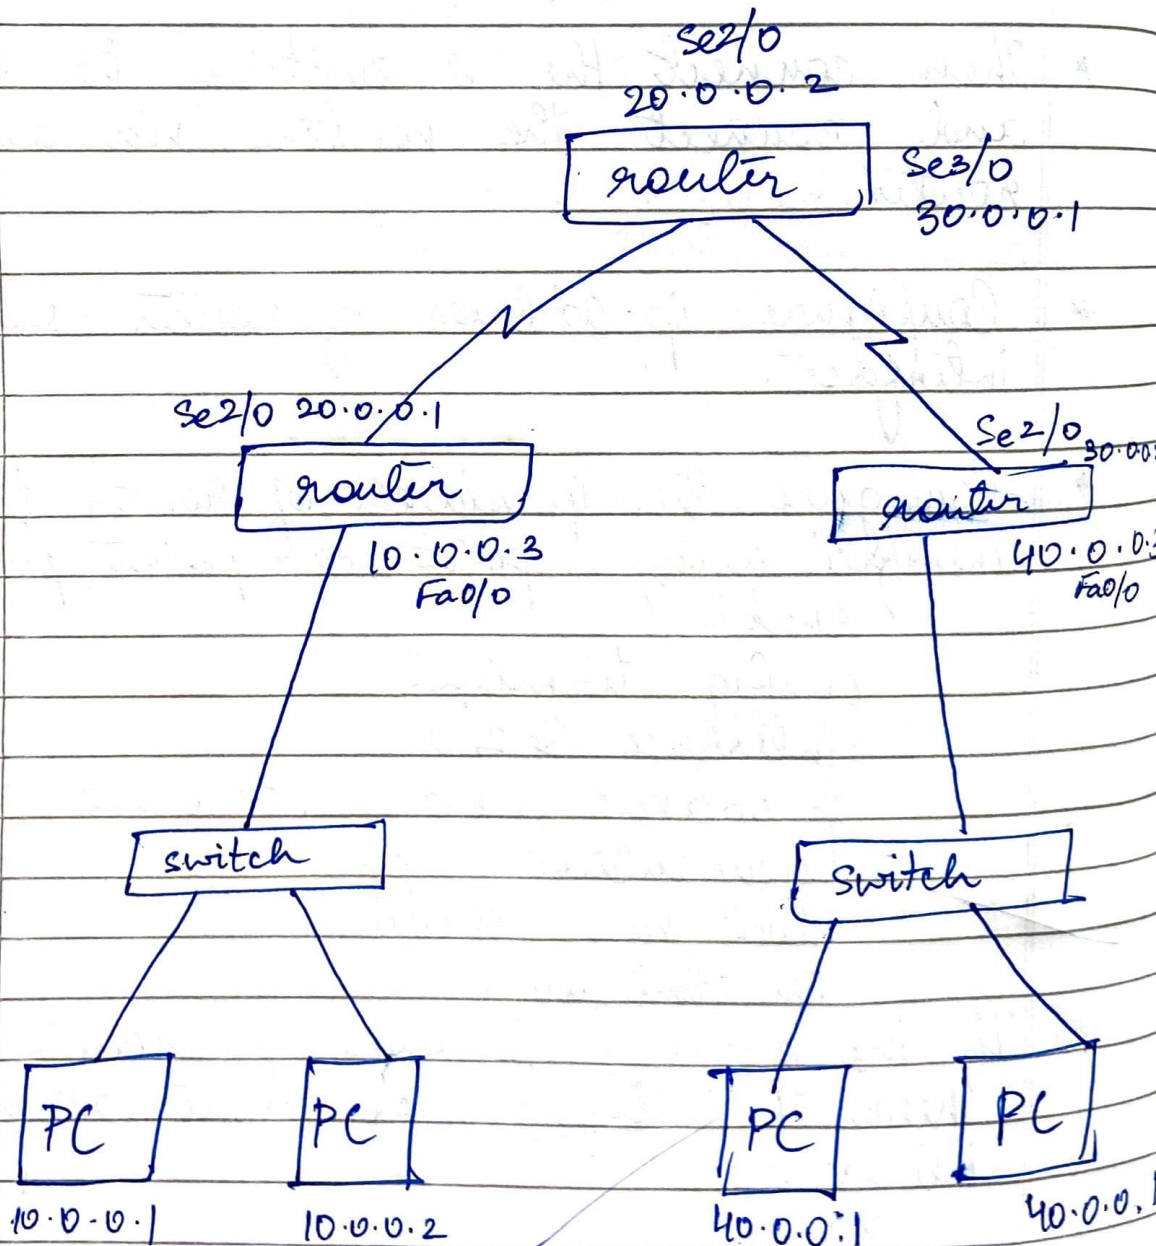 Se2/0
20.0.0.2
router
Se3/0
30.0.0.1
Se2/0 20.0.0.1
router
10.0.0.3
Fa0/0
Se2/0
router
40.0.0.3
Fa0/0
switch
switch
PC
PC
PC
PC
10.0.0.1
10.0.0.2
40.0.0.1